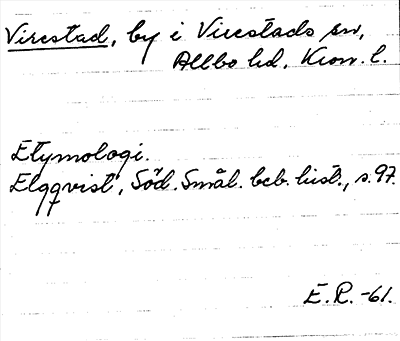 Virestad, by i Virestads sn,
Allbo hd, Kron. l.
Etymologi.
Elqqvist, Söd. Smål. beb. hist., s. 97.
E. R. -61.